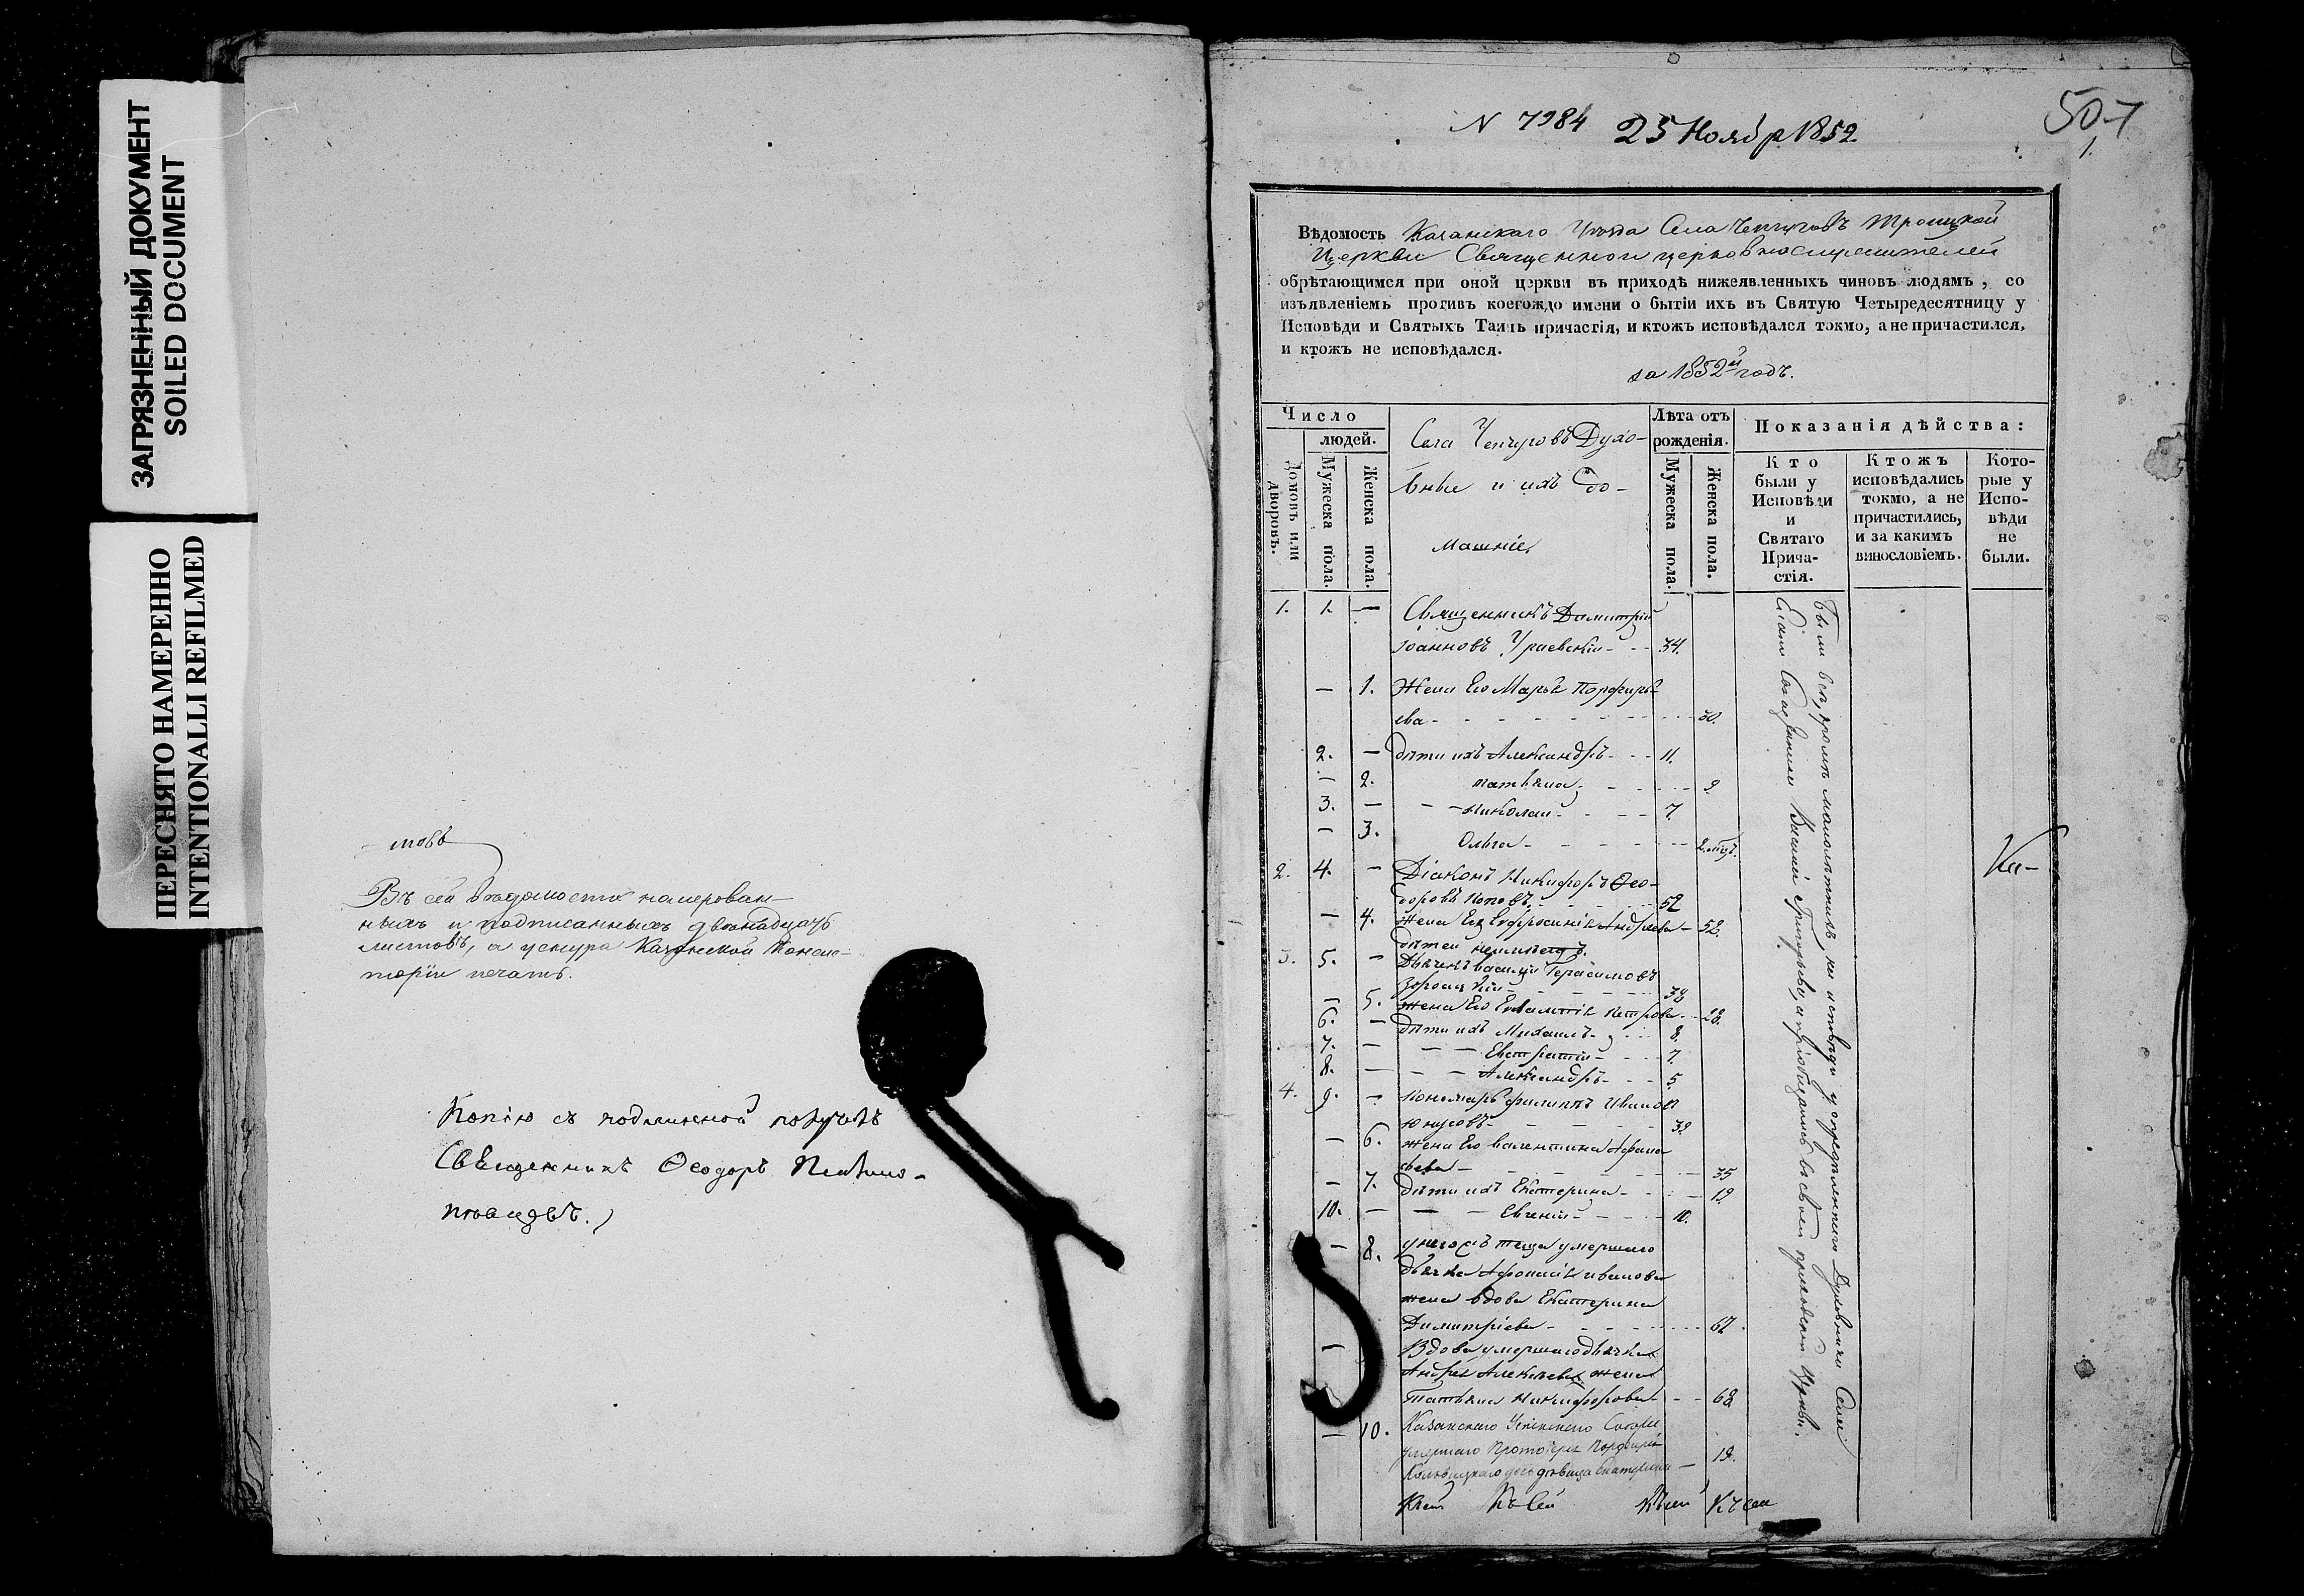 ЗАГРЯЗНЕННЫЙ ДОКУМЕНТ
SOILED DOCUMENT
ПЕРЕСНЯТО НАМЕРЕННО
INTENTIONALLI REFILMED
Въ сей ведомости намерован-
ныхъ и подписанныхъ двенадцать
листовъ, а у снура Казанской Консис-
торіи печать.
Копію съ подлинной получилъ
Священникъ Ѳеодоръ
N 7984 25 Ноябр 1852
507
1.
Вѣдомость Казанскаго Уезда Села Чепчуговъ Троицкой
Церкви Священно и церковнослужителей
обрѣтающимся при оной церкви въ приходѣ нижеявленныхъ чиновъ людямъ, со
изъявленіемъ противъ коегождо имени о бытіи ихъ въ Святую Четыредесятницу у
Исповѣди и Святыхъ Таинъ причастія, и ктожъ исповѣдался токмо, а не причастился,
и ктожъ не исповѣдался.
за 1852й годъ.
Число
людей.
Домовъ или дворовъ.
Мужеска пола.
Женска пола.
Села Чепчуговъ Духо-
вные и ихъ до-
машніе
Лѣта отъ
рожденія.
Мужеска пола.
Женска пола.
Показанія дѣйства:
Кто
были у
Исповѣди
и
Святаго
Прича-
стія.
Ктожъ
исповѣдались
токмо, а не
причастились,
и за какимъ
винословіемъ.
Кото-
рые у
Испо-
вѣди
не
были.
1. 1. — Священникъ Димитрій
Іоанновъ Ураевскій - - 34.
— 1. Жена Его Марья Порфирь
ева - - - 30.
2. — дѣти ихъ Александръ - - - 11.
— 2. Татьяна - - - 9.
3. — — Николай - - - 7.
— 3. Ольга - - - 2. мѣц.
2. 4. — Діаконъ Никифоръ Ѳео-
доровъ Поповъ - - - 52
— 4. Жена Его Евфросинія Андреева - 52.
дѣтей неимѣетъ.
3. 5. — Дьячекъ Василій Герасимовъ
38
— 5. Жена Его Евлампія Петрова - - 28.
6. — дѣти ихъ Михаилъ - - - 8.
7. — — Евстратій - - - 7.
8. — — Александръ - - - 5.
4. 9. — Пономарь Филиппъ Ивановъ
Юнусовъ - - - 39.
— 6. Жена Его Валентина Афана
сьева - - - 35
— 7. дѣти ихъ Екатерина - - - 19
10. — — Евгеній - - - 10.
— 8. у него съ теща умершаго
дьячка Афонасія Иванова
жена вдова Екатерина
Димитріева - - - 67.
— Вдова умершаго дьячка
Андрея Алексѣева жена
Татьяна Никифорова - - 68
— 10. Казанскаго Успенскаго Собора
умершаго Протоіерея Порфирія
дочь дѣвица Екатерина — 19.
Были все, кромѣ малолѣтнихъ, на исповѣди у опредѣленнаго Духовника Села
Василія Григорьева, и пріобщились въ своей приходской Церкви.